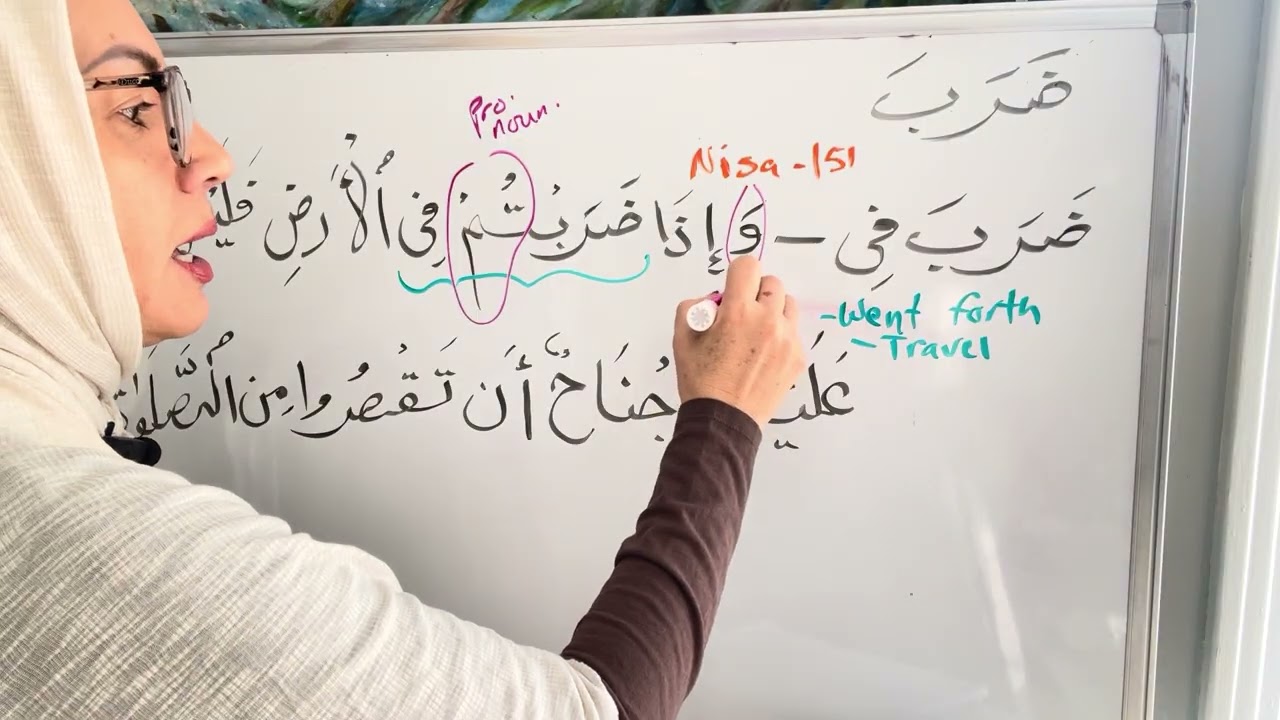 ضَرَبَ
Pro.
noun.
Nisa - 151
ضَرَبَ فِي — وَإِذَا ضَرَبْتُمْ فِي ٱلْأَرْضِ
- Went forth
- Travel
جُنَاحٌ أَن تَقْصُرُوا مِنَ الصَّلَوٰةِ